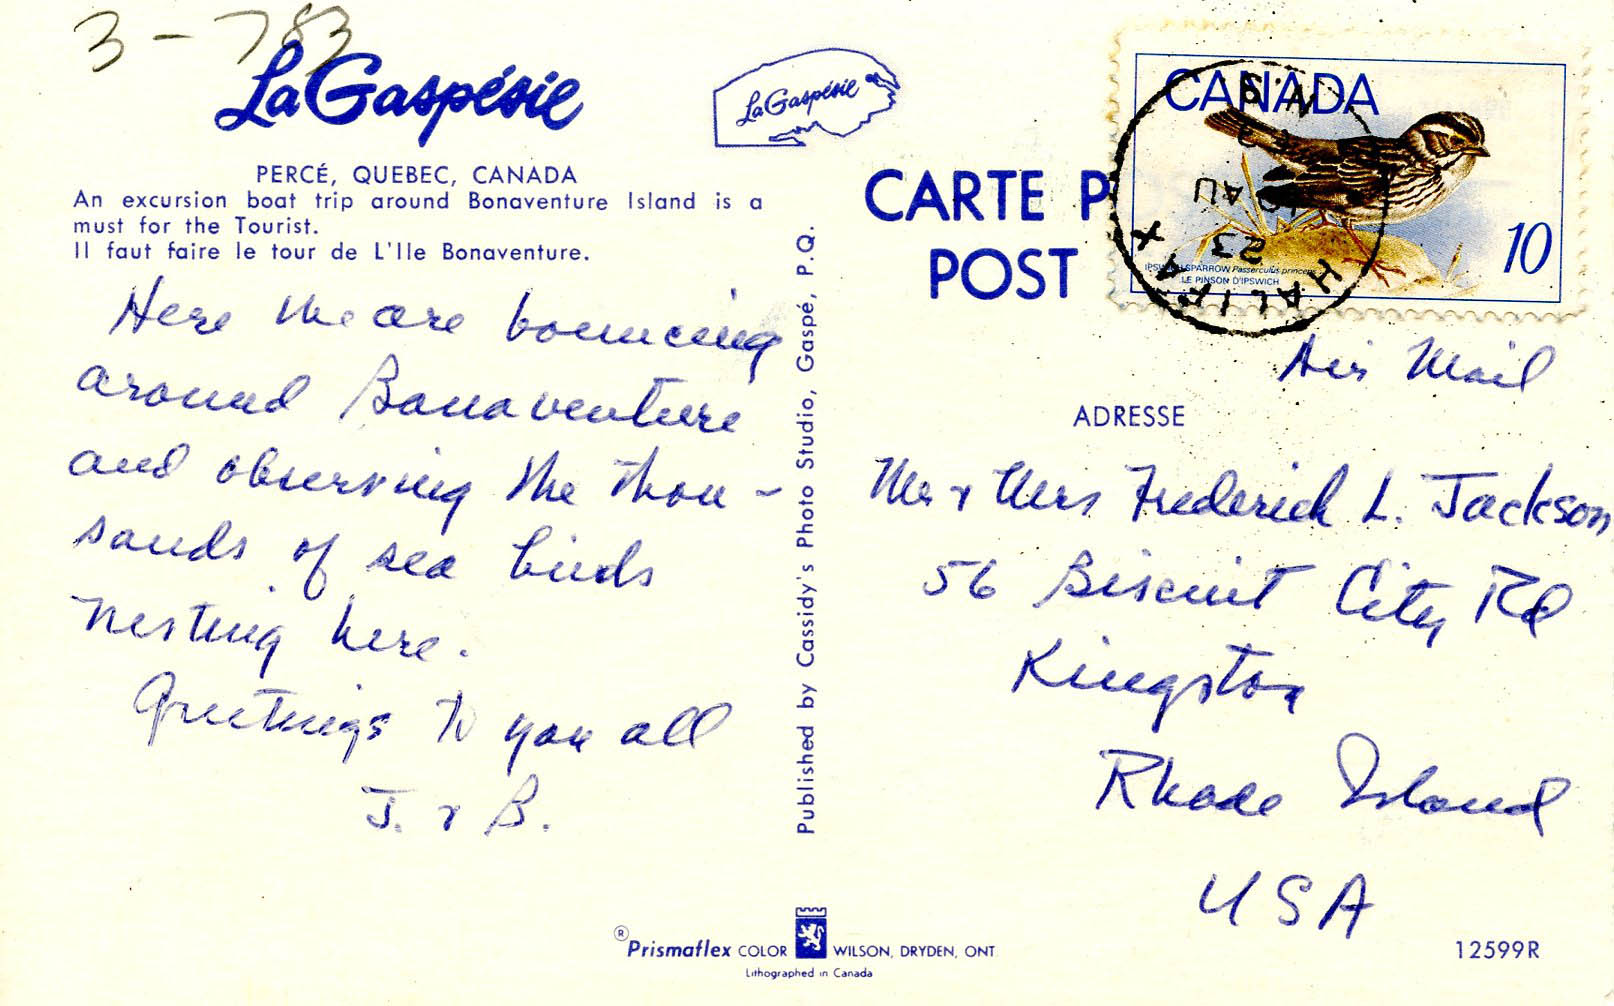 3-783
La Gaspésie
PERCÉ, QUEBEC, CANADA
An excursion boat trip around Bonaventure Island is a
must for the Tourist.
Il faut faire le tour de L'Ile Bonaventure.
Here we are bouncing
around Bonaventure
and observing the thou-
sands of sea birds
nesting here.
Greetings to you all
J. & B.
Published by Cassidy's Photo Studio, Gaspé, P.Q.
La Gaspésie
CARTE P
POST
CANADA
10
IPSWICH SPARROW Passerculus princeps
LE PINSON D'IPSWICH
HALIFAX
N.S.
23
AU
Air Mail
ADRESSE
Mr & Mrs Frederick L. Jackson
56 Biscuit City Rd
Kingston
Rhode Island
USA
® Prismaflex COLOR WILSON, DRYDEN, ONT.
Lithographed in Canada
12599R